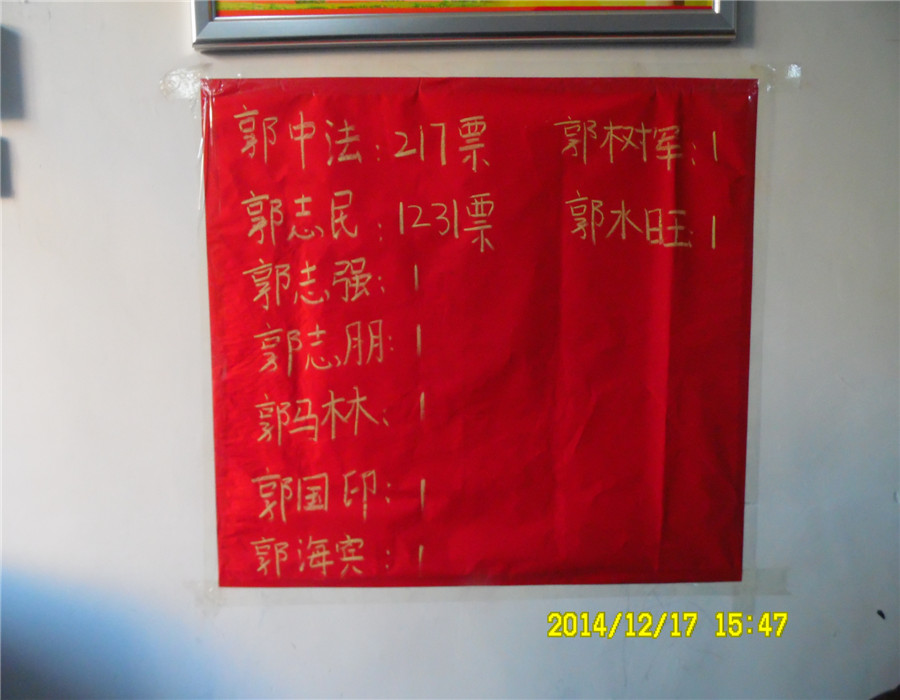 郭中法：217票
郭志民：1231票
郭志强：1
郭志朋：1
郭马林：1
郭国印：1
郭海宾：1
郭树挥：1
郭水旺：1
2014/12/17 15:47